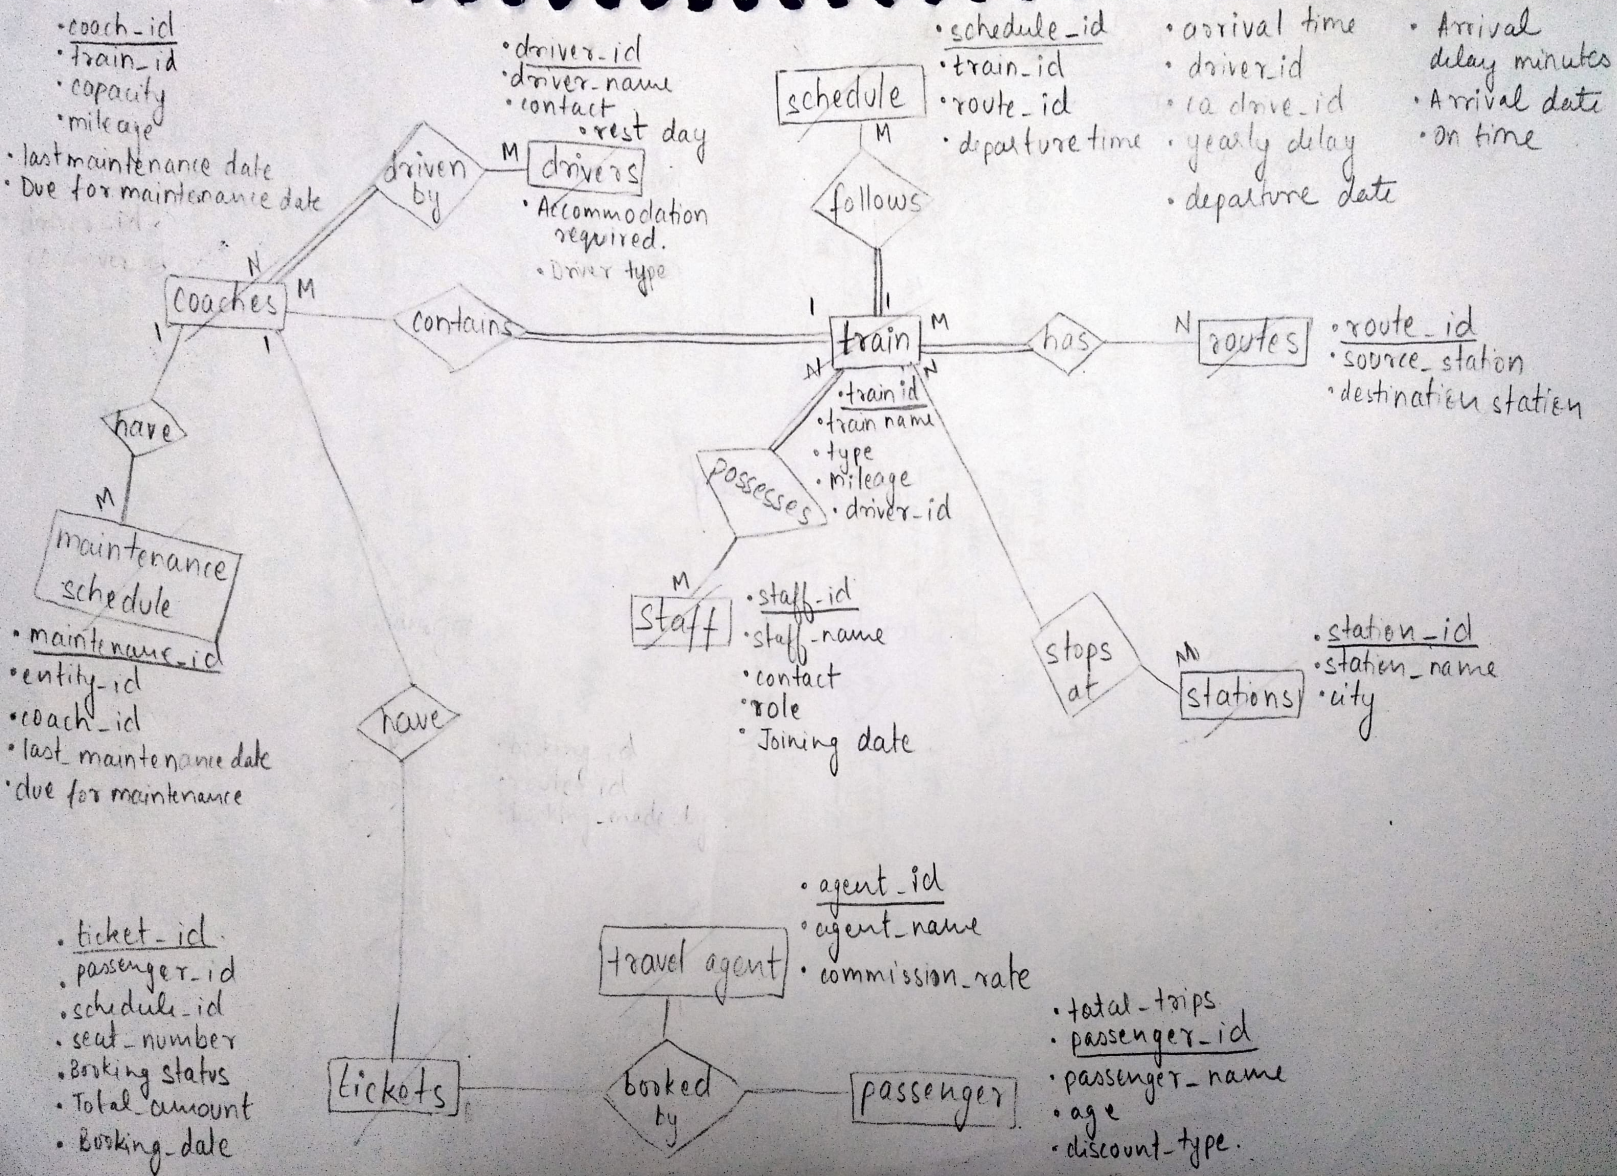 • coach_id
• train_id
• capacity
• mileage
• last maintenance date
• Due for maintenance date
• driver_id
• driver_name
• contact
• rest day
drivers
• Accommodation
required.
• Driver type
driven
by
M
N
schedule
M
follows
• schedule_id
• train_id
• route_id
• departure time
• arrival time
• driver_id
• ca drive_id
• yearly delay
• departure date
• Arrival
delay minutes
• Arrival date
• on time
coaches
M
1
1
contains
1
1
train
M
N
N
has
N
routes
• route_id
• source_station
• destination station
• train id
• train name
• type
• mileage
• driver_id
have
M
maintenance
schedule
• maintenanc_id
• entity_id
• coach_id
• last_maintenance date
• due for maintenance
possesses
M
staff
• staff_id
• staff_name
• contact
• role
• Joining date
stops
at
M
stations
• station_id
• station_name
• city
have
• ticket_id
• passenger_id
• schedule_id
• seat_number
• Booking status
• Total_amount
• Booking_date
tickets
travel agent
• agent_id
• agent_name
• commission_rate
booked
by
passenger
• total_trips
• passenger_id
• passenger_name
• age
• discount_type.